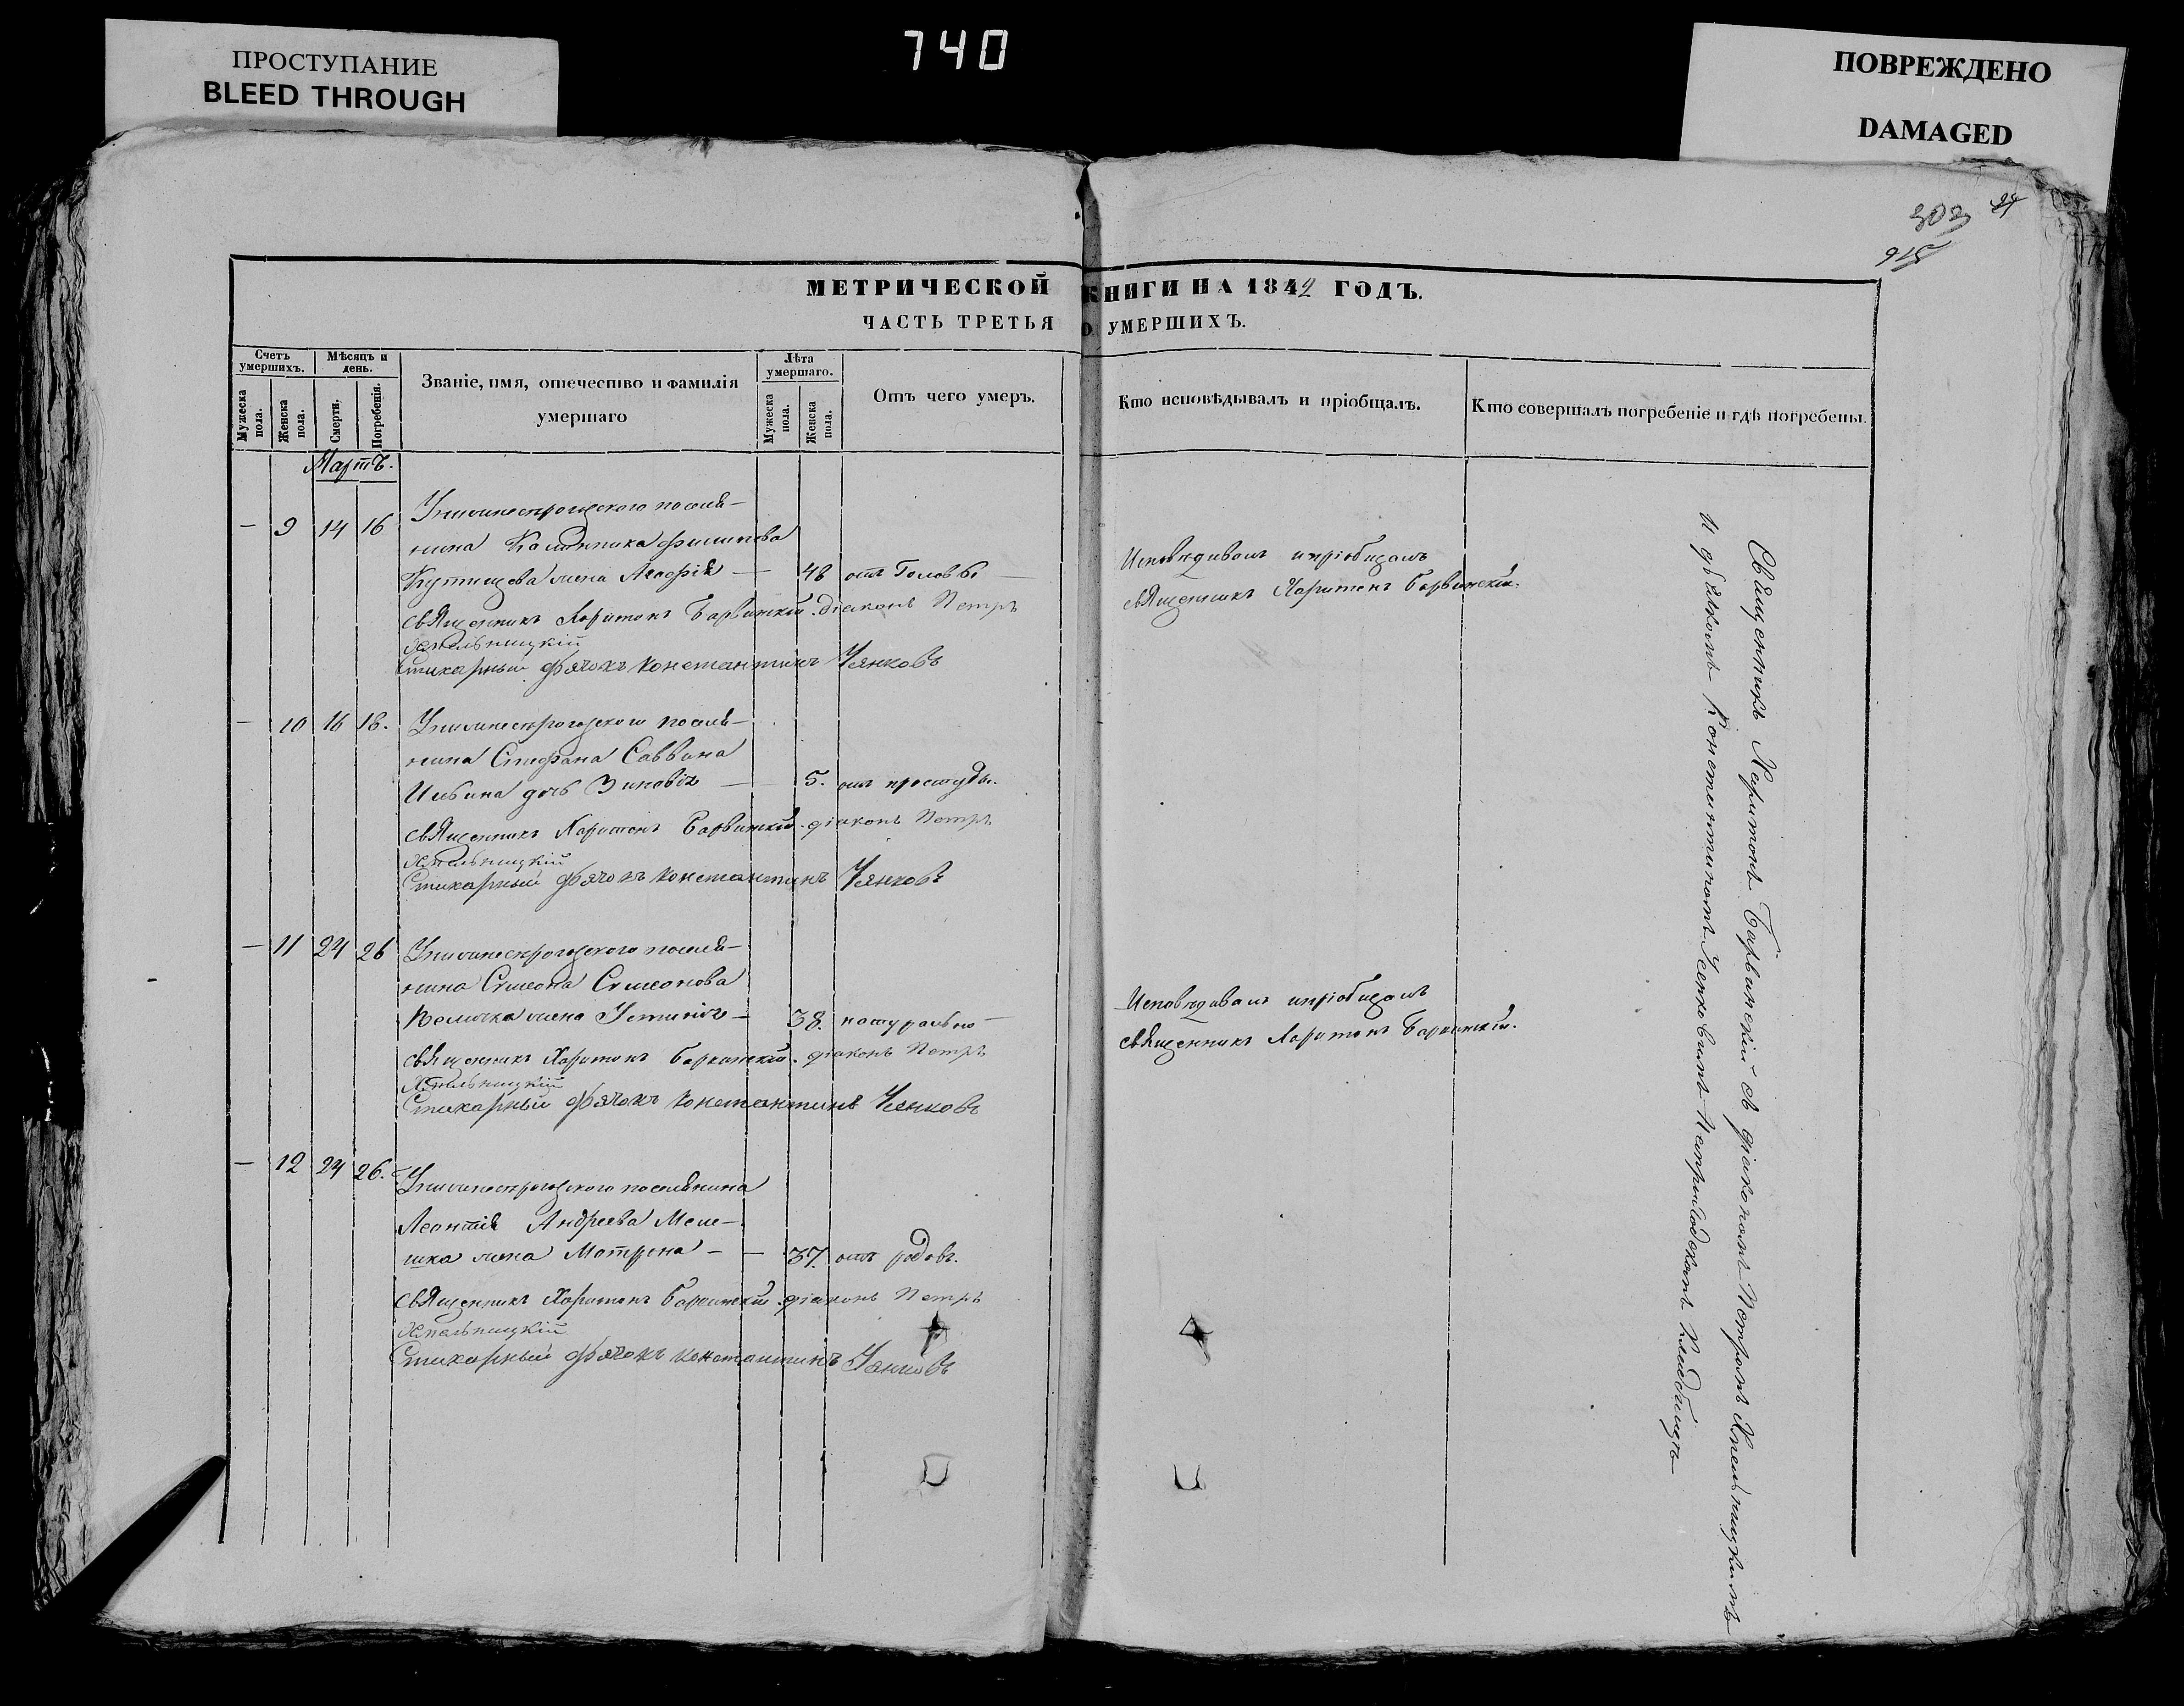 740
ПРОСТУПАНИЕ
BLEED THROUGH
ПОВРЕЖДЕНО
DAMAGED
303
МЕТРИЧЕСКОЙ КНИГИ НА 1842 ГОДЪ.
ЧАСТЬ ТРЕТЬЯ О УМЕРШИХЪ.
Счетъ умершихъ.
Мужеска пола.
Женска пола.
Мѣсяцъ и день.
Смерти.
Погребенія.
Званіе, имя, отечество и фамилія умершаго
Лѣта умершаго.
Мужеска пола.
Женска пола.
Отъ чего умеръ.
Кто исповѣдывалъ и пріобщалъ.
Кто совершалъ погребеніе и гдѣ погребены.
Мартъ.
— 9 14 16 поселя-
нина Калинника Филипова
жена Агафія — 48 отъ
священникъ Харитонъ Барвинскій. діаконъ Петръ
Хмельницкій
Стихарный дьячокъ Константинъ Усенковъ
Исповѣдивалъ и пріобщалъ
священникъ Харитонъ Барвинскій.
— 10 16 18. поселя-
нина Стефана Саввина
Ильина дочь Зиновія — 5. отъ простуды.
священникъ Харитонъ Барвинскій. діаконъ Петръ
Хмельницкій
Стихарный дьячокъ Константинъ Усенковъ
— 11 24 26 поселя-
нина Симеона Симеонова
жена Устинія — 38. натурально —
священникъ Харитонъ Барвинскій. діаконъ Петръ
Хмельницкій
Стихарный дьячокъ Константинъ Усенковъ
Исповѣдивалъ и пріобщалъ
священникъ Харитонъ Барвинскій.
— 12 24 26. поселянина
Леонтія Андреева Меле-
шка жена Матрона — — 37. отъ родовъ.
священникъ Харитонъ Барвинскій. діаконъ Петръ
Хмельницкій
Стихарный дьячокъ Константинъ Усенковъ
Священникъ Харитонъ Барвинскій съ діакономъ Петромъ Хмельницкимъ
и дьячкомъ Константиномъ Усенковимъ на приходскомъ кладбищѣ